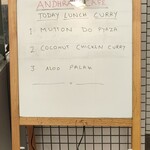 ANDHRA
TODAY LUNCH CURRY
1 MUTTON DO PIAZA
2 COCONUT CHICKEN CURRY
3 ALOO PALAK